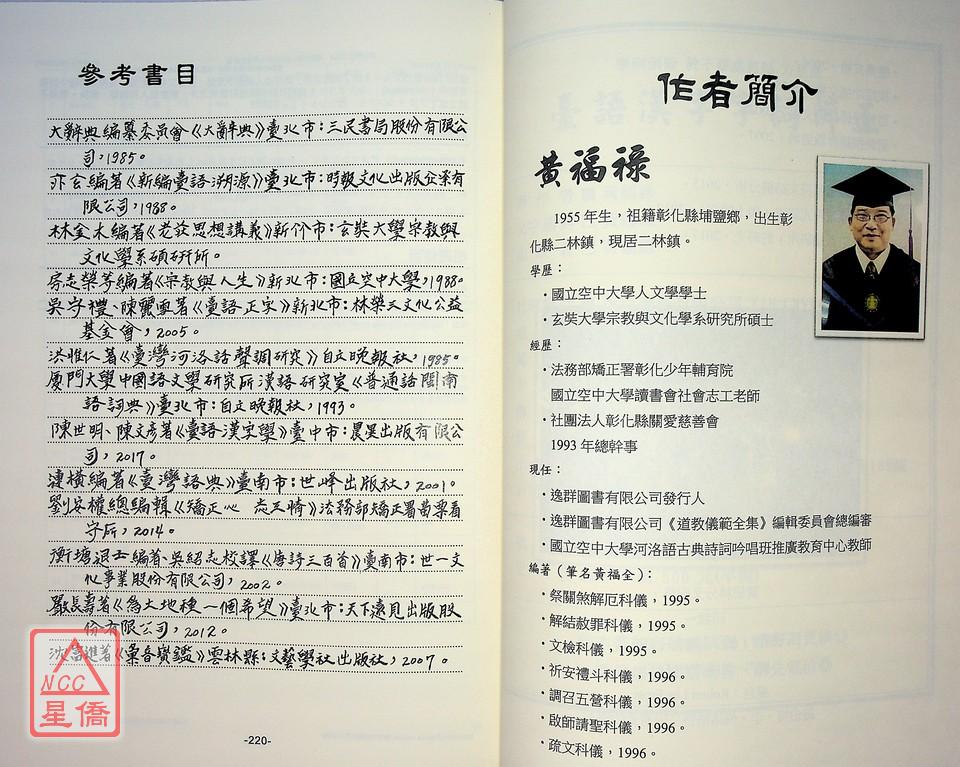 參考書目
大辭典編纂委員會《大辭典》臺北市：三民書局股份有限公
司，1985。
亦玄編著《新編臺語溯源》臺北市：時報文化出版企業有
限公司，1988。
林金木編著《老莊思想講義》新竹市：玄奘大學宗教與
文化學系碩研所。
等編著《宗教與人生》新北市：國立空中大學，1988。
吳守禮、陳 著《臺語正字》新北市：林榮三文化公益
基金會，2005。
洪惟仁著《臺灣河洛話聲調研究》自立晚報社，1985。
廈門大學中國語文學研究所漢語研究室《普通話閩南
語詞典》臺北市：自立晚報社，1993。
陳世明、陳文彥著《臺語漢字學》臺中市：晨星出版有限公
司，2017。
連橫編著《臺灣語典》臺南市：世峰出版社，2001。
劉安權總編輯《矯正心 志工情》法務部矯正署苗栗看
守所，2014。
衡塘退士編著、吳紹志校譯《唐詩三百首》臺南市：世一文
化事業股份有限公司，2002。
嚴長壽著《為土地種一個希望》臺北市：天下遠見出版股
份有限公司，2012。
沈富進著《彙音寶鑑》雲林縣：文藝學社出版社，2007。
NCC
星僑
-220-
作者簡介
黃福祿
1955 年生，祖籍彰化縣埔鹽鄉，出生彰
化縣二林鎮，現居二林鎮。
學歷：
・國立空中大學人文學學士
・玄奘大學宗教與文化學系研究所碩士
經歷：
・法務部矯正署彰化少年輔育院
國立空中大學讀書會社會志工老師
・社團法人彰化縣關愛慈善會
1993 年總幹事
現任：
・逸群圖書有限公司發行人
・逸群圖書有限公司《道教儀範全集》編輯委員會總編審
・國立空中大學河洛語古典詩詞吟唱班推廣教育中心教師
編著（筆名黃福全）：
・祭關煞解厄科儀，1995。
・解結赦罪科儀，1995。
・文檢科儀，1995。
・祈安禮斗科儀，1996。
・調召五營科儀，1996。
・啟師請聖科儀，1996。
・疏文科儀，1996。